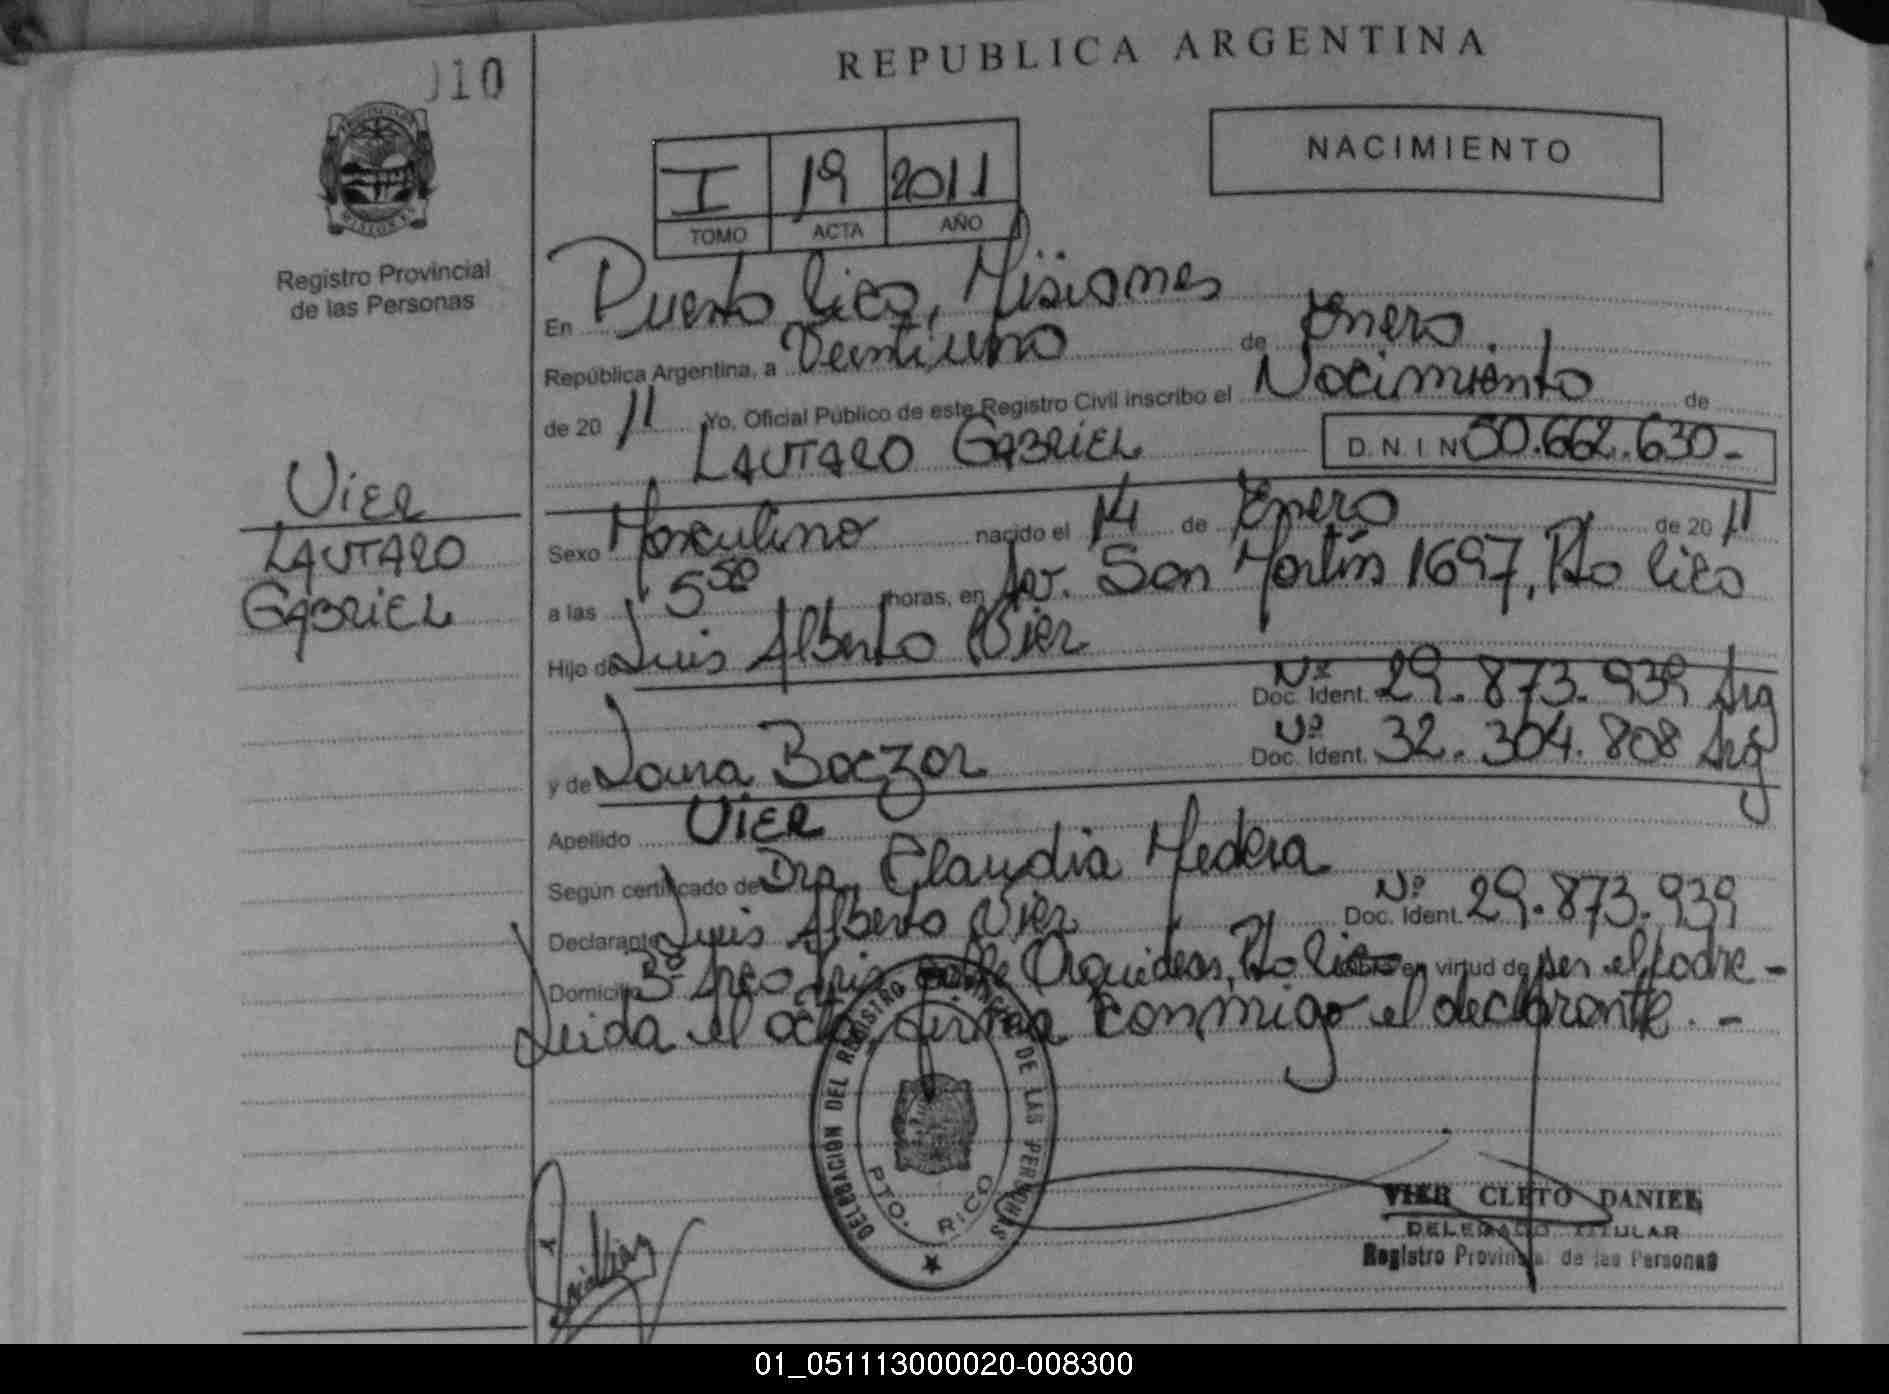 010
REPUBLICA ARGENTINA
NACIMIENTO
I 19 2011
TOMO ACTA AÑO
PROVINCIA DE MISIONES
Registro Provincial
de las Personas
Vier
LAUTARO
GABRIEL
En Puerto Rico, Misiones
República Argentina, a Veintiuno de Enero
de 20 11 Yo, Oficial Público de este Registro Civil inscribo el Nacimiento de
LAUTARO GABRIEL D.N.I Nº 50.662.630-
Sexo Masculino nacido el 14 de Enero de 20 11
a las 5 50 horas, en Av. San Martín 1697, Pto Rico
Hijo de Luis Alberto Vier
Nº Doc. Ident. 29.873.939 Arg
y de Laura Baczor Nº Doc. Ident. 32.304.808 Arg
Apellido VIER
Según certificado de Dra. Claudia Medera
Declarante Luis Alberto Vier Nº Doc. Ident. 29.873.939
Domicilio calle Orquideas, Pto Rico en virtud de ser el padre -
Leida el acta, firma conmigo el declarante. -
DELEGACION DEL REGISTRO PROVINCIAL DE LAS PERSONAS
PTO. RICO
VIER CLETO DANIEL
DELEGADO TITULAR
Registro Provincial de las Personas
01_051113000020-008300